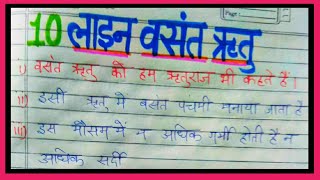 10 लाइन वसंत ऋतु
i) वसंत ऋतु को हम ऋतुराज भी कहते हैं।
ii) इसी ऋतु में वसंत पंचमी मनाया जाता है
iii) इस मौसम में न अधिक गर्मी होती है न
अधिक सर्दी